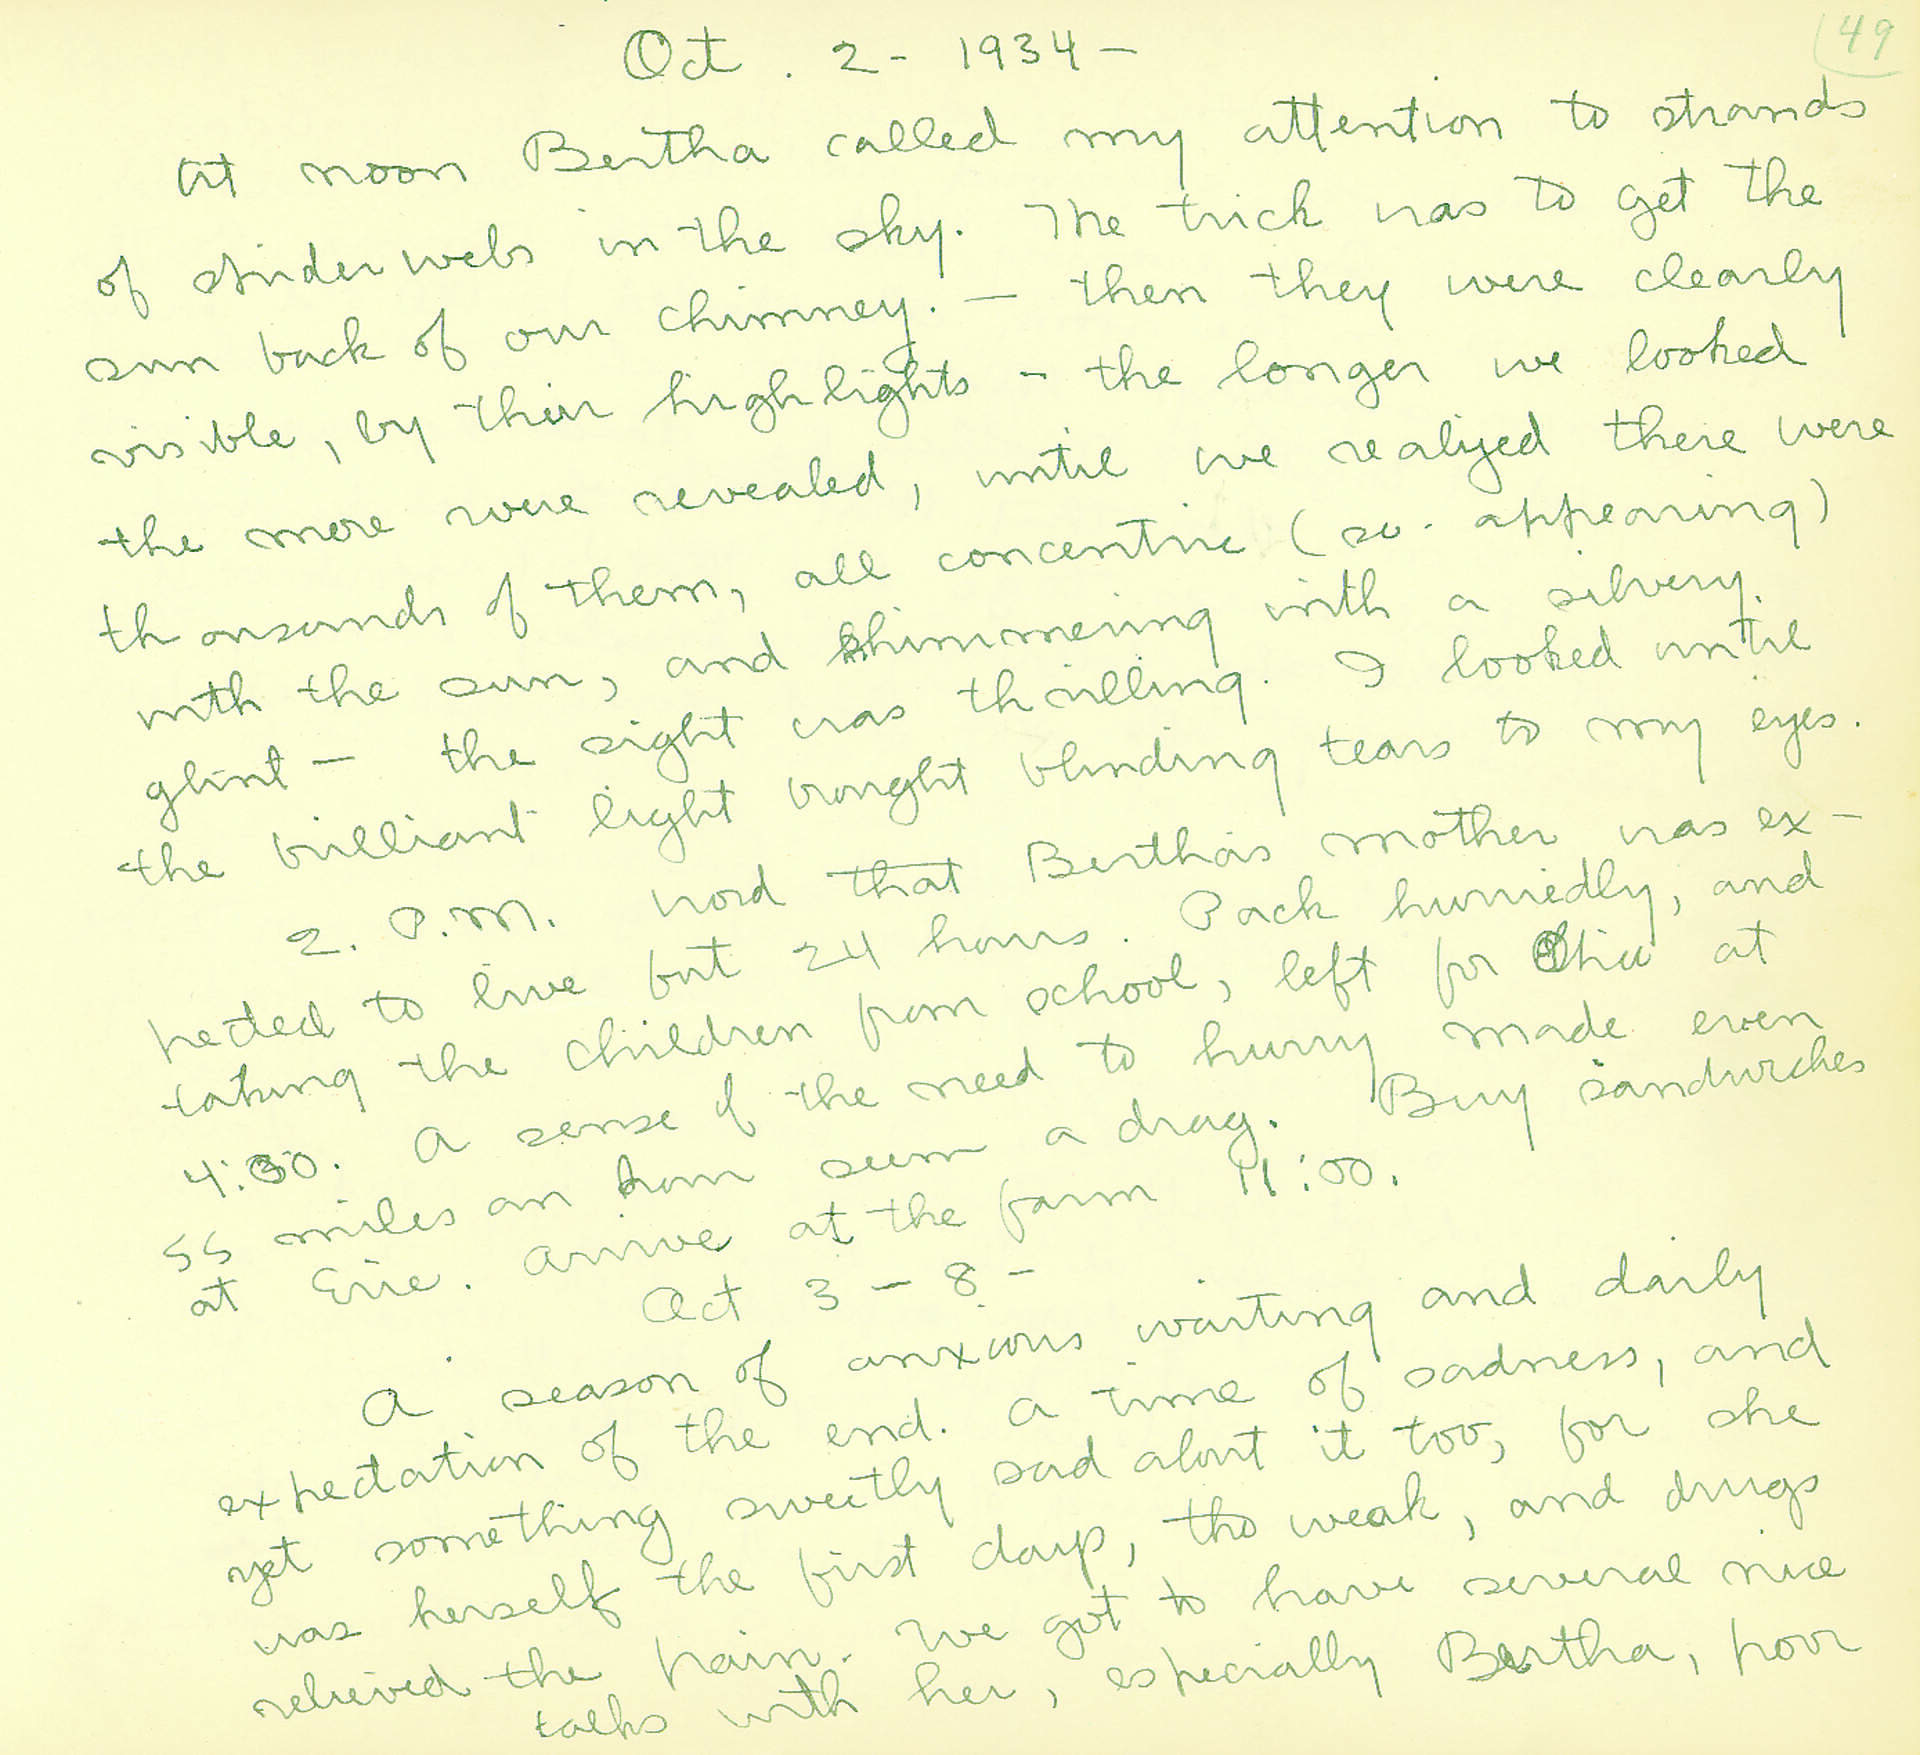 49
Oct. 2 - 1934 -
At noon Bertha called my attention to strands
of spider webs in the sky. The trick was to get the
sun back of our chimney. - then they were clearly
visible, by their highlights - the longer we looked
the more were revealed, until we realized there were
thousands of them, all concentric (so-appearing)
with the sun, and shimmering with a silvery
glint - the sight was thrilling. I looked until
the brilliant light brought blinding tears to my eyes.
2. P.M. word that Bertha's mother was ex-
pected to live but 24 hours. Pack hurriedly, and
taking the children from school, left for Ohio at
4:30. A sense of the need to hurry made even
55 miles an hour seem a drag. Buy sandwiches
at Erie. Arrive at the farm 11:00.
Oct 3 - 8 -
A season of anxious waiting and daily
expectation of the end. A time of sadness, and
yet something sweetly sad about it too, for she
was herself the first days, tho weak, and drugs
relieved the pain. We got to have several nice
talks with her, especially Bertha, poor